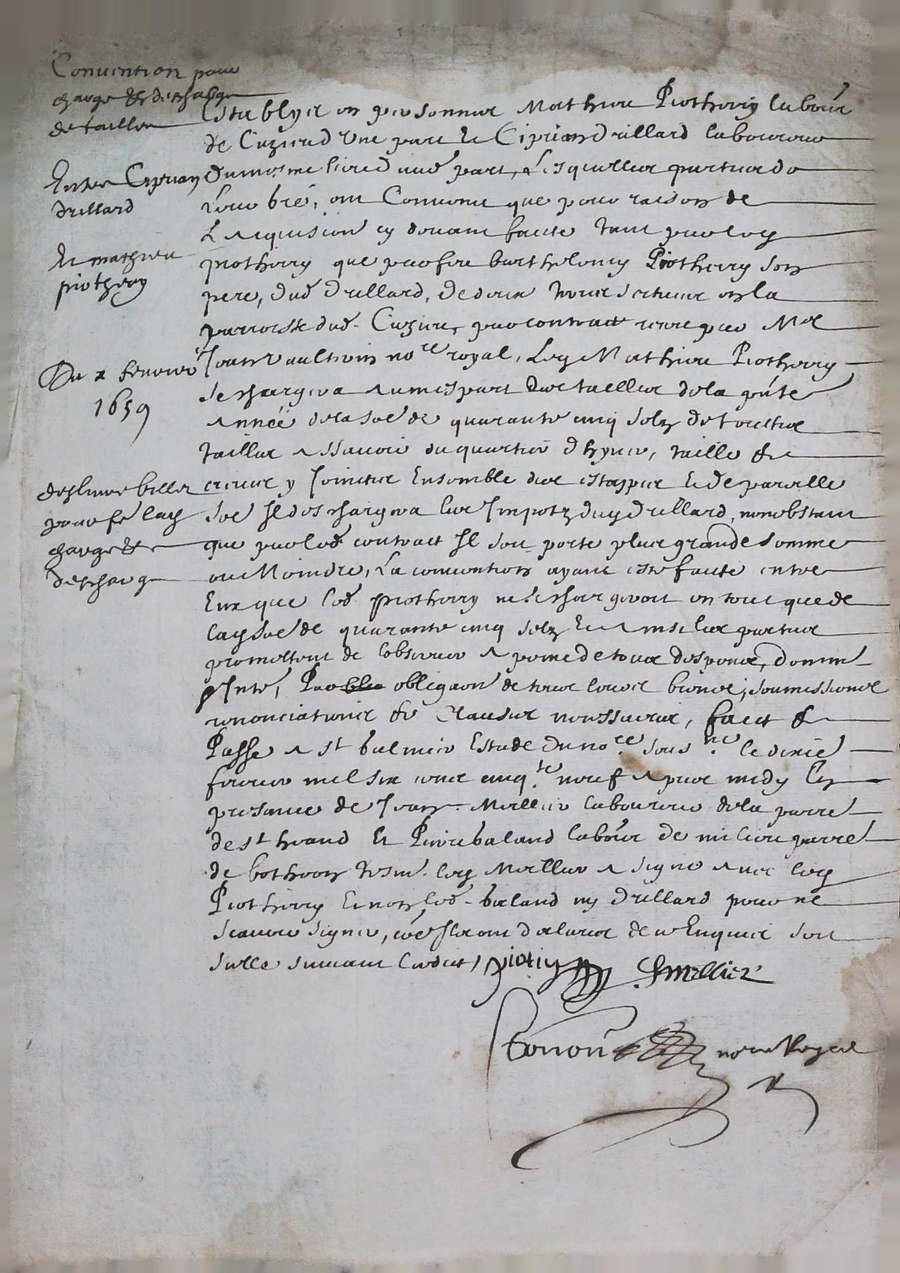 Convention pour
charge & descharge
de tailles
Entre Ciprian
drillard
Et mathieu
piotherry
Du x fevrier
1659
deslivre billet
pour fe. lad.
charge &
descharg
Establys en personnes Mathieu Piotherry labour
de Cuzieu d'une part Et Ciprian drillard laboureur
du mesme lieu d'aud. part, Lesquelles parties de
leur gré, ont Convenu que pour raison de
L'acquision cy devant faicte tant par led.
piotherry que par feu barthelemy Piotherry son
pere, dud. drillard, de
parroisse dud. Cuzieu, par contract receu par Me
Jean vaultrin no.re royal, Led. Mathieu Piotherry
se chargera a la part des tailles de la p.nte
Année de la so.e de quarante cinq solz de toutes
tailles assavoir du quartier d'hyver, taille &
creues y Jointes Ensemble des estappes et de pareille
so.e Il deschargera les Impotz dud. drillard, nonobstant
que par led. contract Il soit porte plus grande somme
ou Moindre, La convention ayant esté faicte entre
Eux que led. piotherry ne se chargeroit en tout que de
lad. so.e de quarante cinq solz Et Ainsi les parties
promettent de l'observer A peine de tous despens, domm.
Intz, Par obligaon de tous leurs biens, soumissions
renonciations & Clauses necessaires, faict &
Passé A st balmier Estude du no.re sous.ne le dixie
fevrier mil six cens cinq.te neuf apres midy En
presence de Jean Mellier laboureur de la parre
de st heand Et Pierre baland labour de milieu parre
de botheon tesm. led. Mellier A signé Avec led.
Piotherry Et non led. baland ny drillard pour ne
scavoir signer, de ce Enquis soit
selle suivant l'edict, piotery Jmellier
no.re Royal